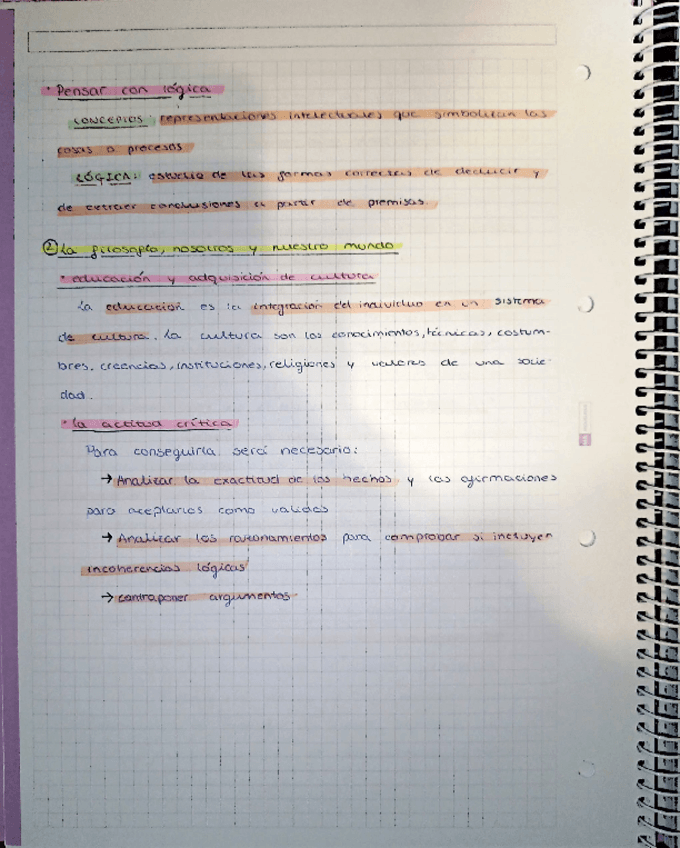 · Pensar con lógica
CONCEPTOS: representaciones intelectuales que simbolizan las
cosas o procesos
LÓGICA: estudio de las formas correctas de deducir y
de extraer conclusiones a partir de premisas.
② La filosofía, nosotros y nuestro mundo
· educación y adquisición de cultura
La educación es la integración del individuo en un sistema
de cultura. La cultura son los conocimientos, técnicas, costum-
bres, creencias, instituciones, religiones y valores de una socie-
dad.
· la actitud crítica
Para conseguirla será necesario:
→ Analizar la exactitud de los hechos y las afirmaciones
para aceptarlos como validos
→ Analizar los razonamientos para comprobar si incluyen
incoherencias lógicas
→ contraponer argumentos